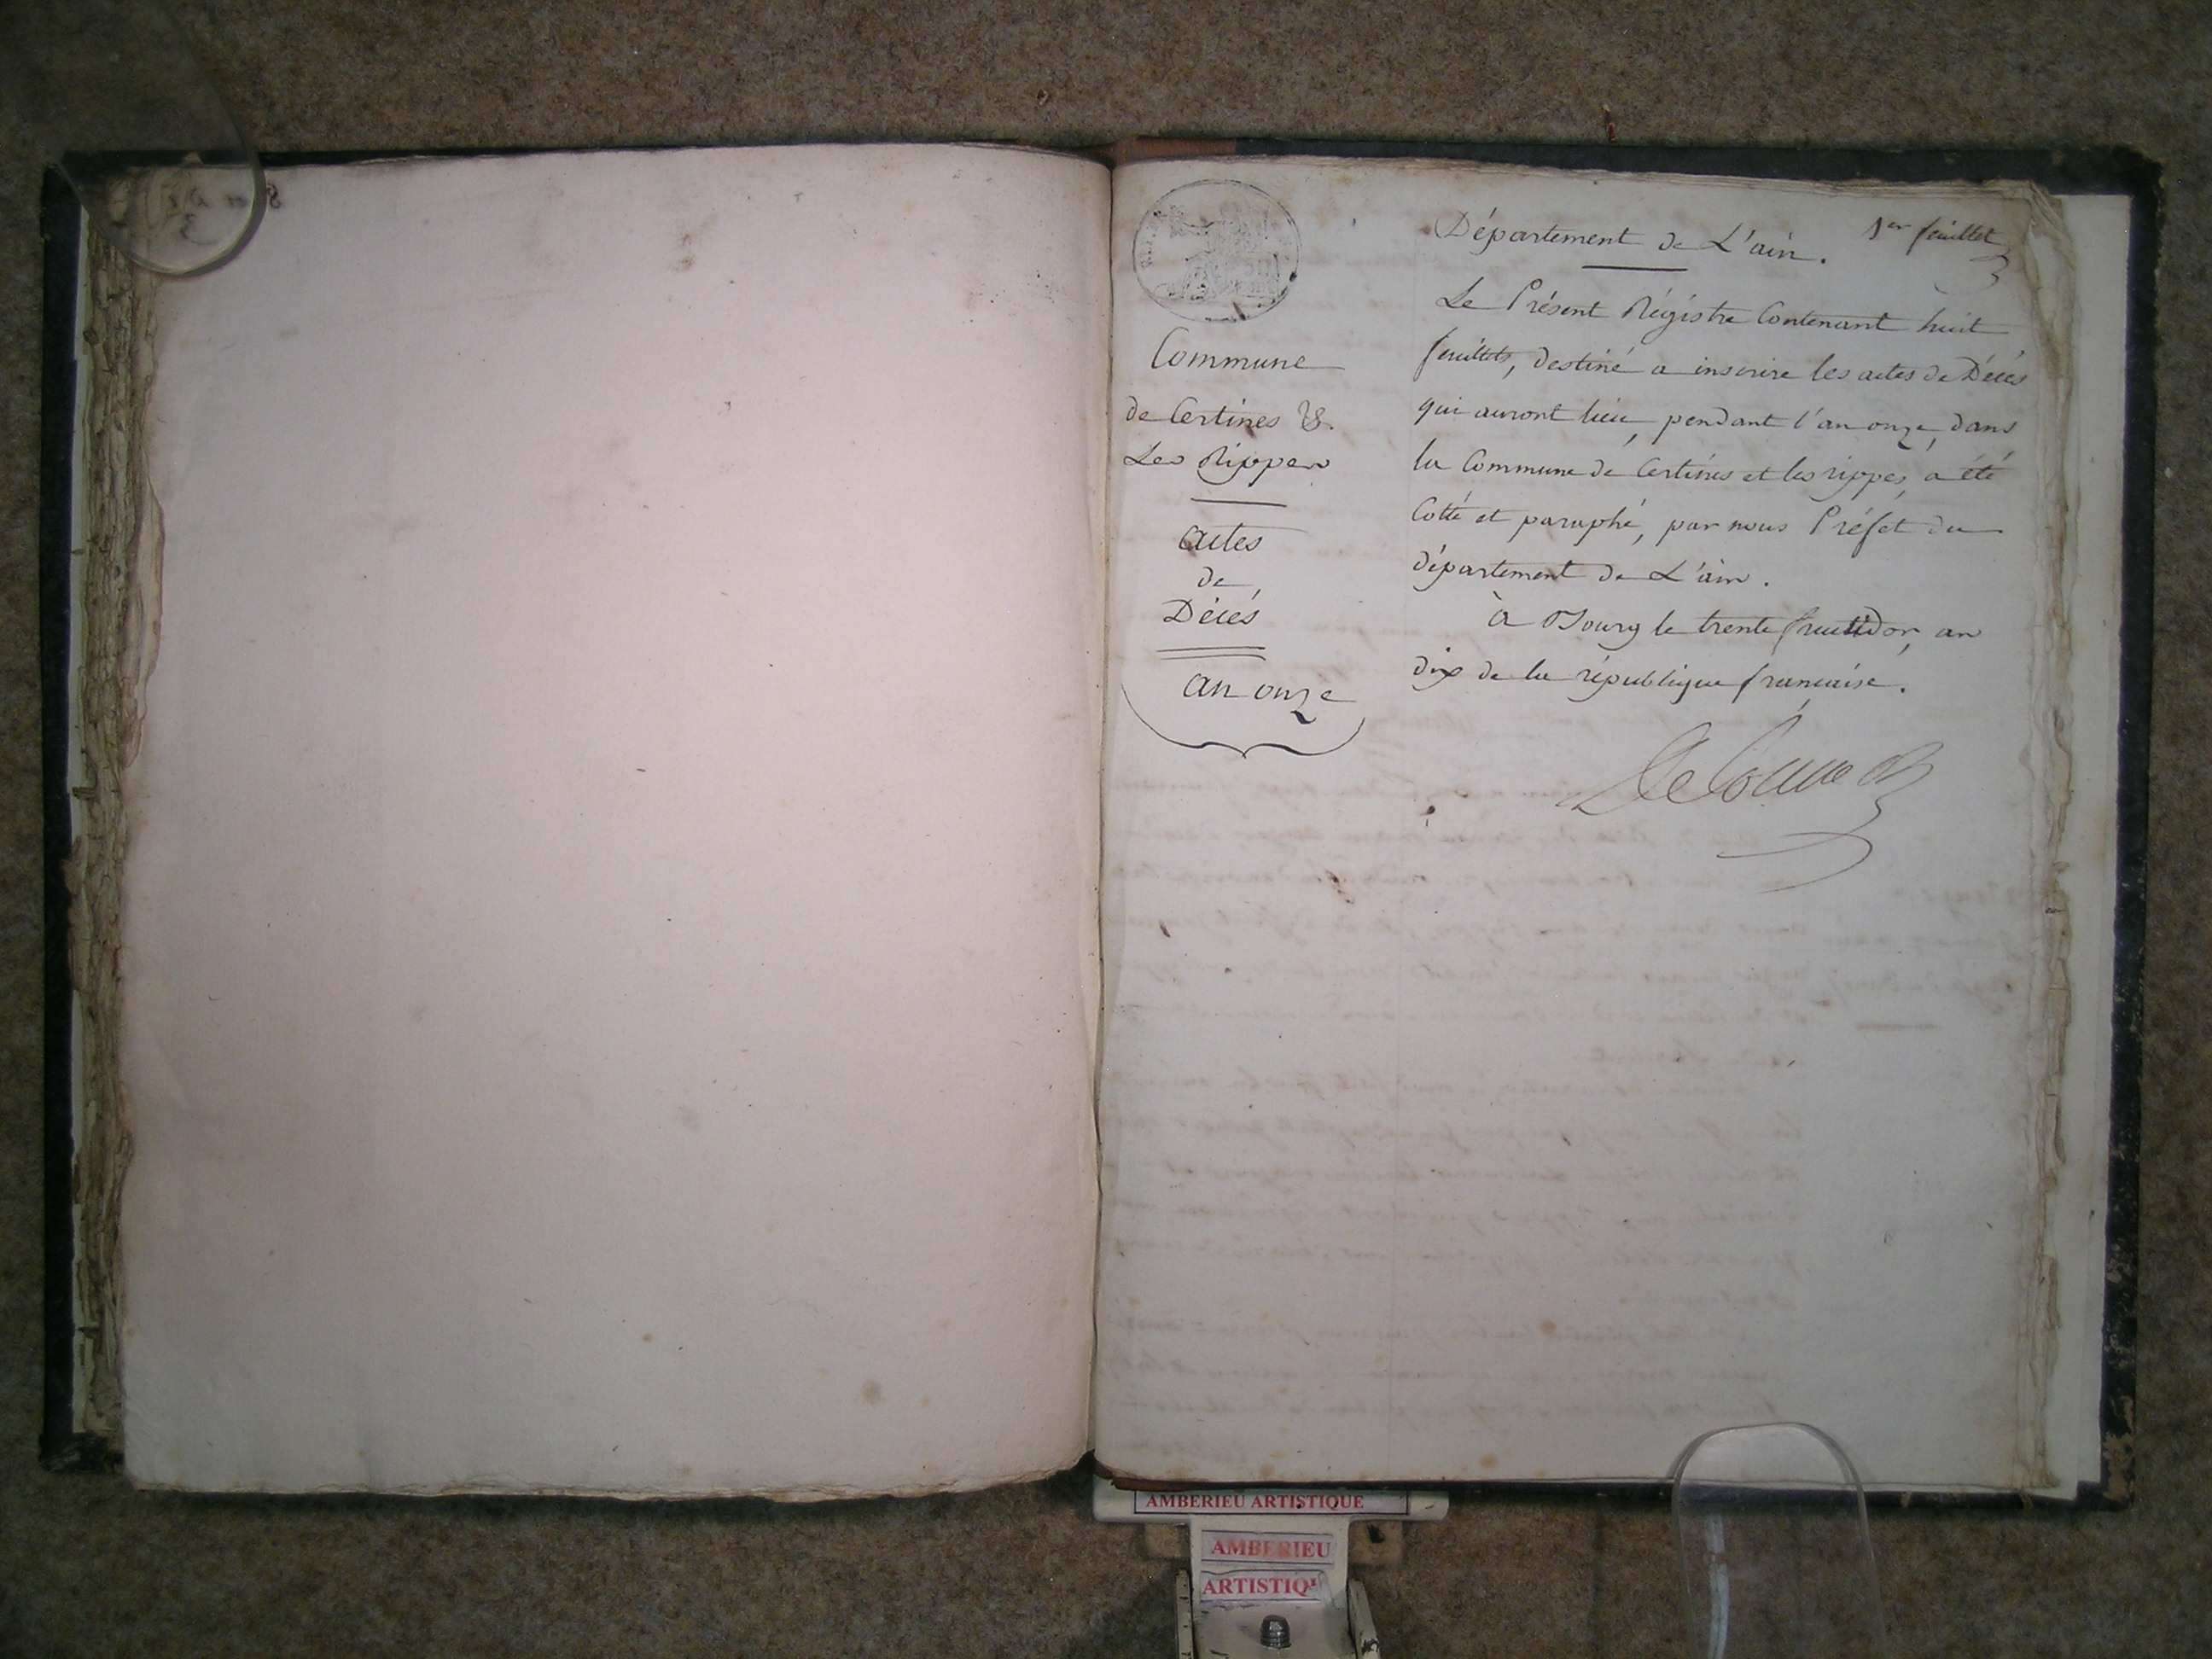 Département de L'ain.
1er feuillet
Commune
de Certines &
Les Rippes
actes
de
Décés
an onze
Le Présent Régistre Contenant huit
feuillets, destiné a inscrire les actes de Décés
qui auront lieu, pendant l'an onze, dans
la Commune de Certines et les rippes, a été
Cotté et paraphé, par nous Préfet du
département de L'ain.
à Bourg le trente fructidor, an
dix de la république francaise.
AMBERIEU ARTISTIQUE
AMBERIEU
ARTISTIQU